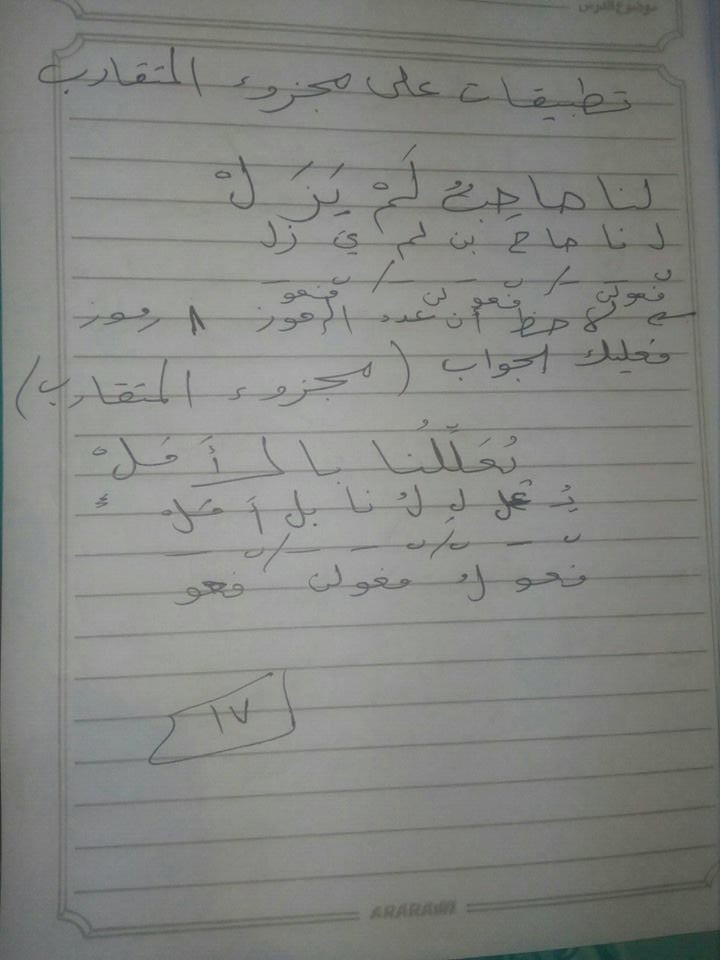 موضوع الدرس
تطبيقات على مجزوء المتقارب
لنا صاحِبٌ لَمْ يَزَلْ
لـ نا صا حِ بن لم يَ زل
ںـ _ _ / ںـ _ _ / ںـ _
فعولن فعولن فعو
لاحظ أن عدد الرموز ٨ رموز
فعليك الجواب (مجزوء المتقارب)
يُعَلِّلُنا بالـ أَ مَلْ
يُـ عل لِ لُ نا بل أَ مَلْ
ںـ _ ںـ / ںـ _ _ / ںـ _
فعو لُ فعولن فعو
١٧
ARARAWI